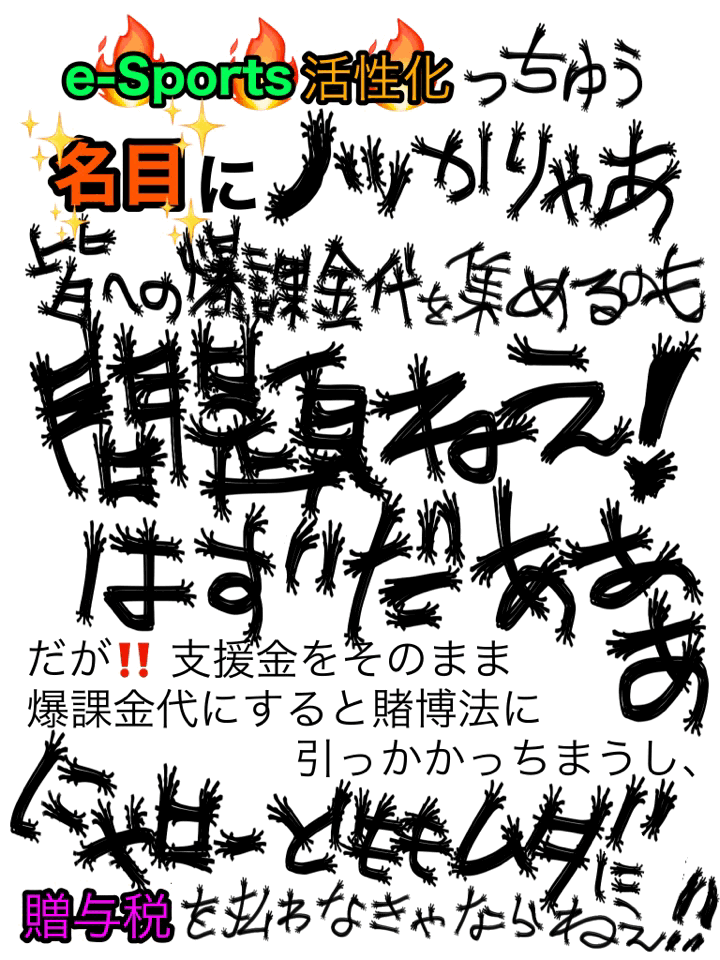 e-Sports活性化っちゅう
名目にノッかりゃあ
皆への爆課金代を集めるのも
問題ねえ!
はずだあああ
だが‼ 支援金をそのまま
爆課金代にすると賭博法に
引っかかっちまうし、
ヤローどももムダに
贈与税を払わなきゃならねえ!!